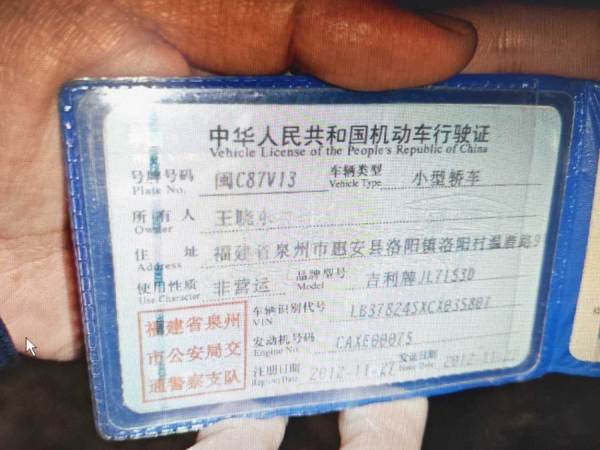 中华人民共和国机动车行驶证
Vehicle License of the People's Republic of China
号牌号码 闽C87V13 车辆类型 小型轿车
Plate No. Vehicle Type
所有人 王晓东
Owner
住址 福建省泉州市惠安县洛阳镇洛阳村
Address
使用性质 非营运 品牌型号 吉利牌JL7153D
Use Character Model
福建省泉州
市公安局交
通警察支队
车辆识别代号 LB37824SXCX035807
VIN
发动机号码 CAXE00075
Engine No.
注册日期 2012-11-27 发证日期 2012-11-27
Register Date Issue Date